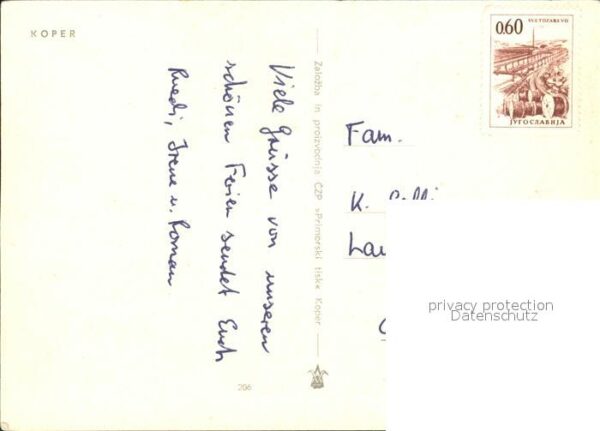 KOPER
Viele Grüsse von unseren
schönen Ferien sendet Euch
Ruedi, Irene u. Roman
Založba in proizvodnja ČZP »Primorski tisk« Koper
206
0.60
SVETOZAREVO
JUGOSLAVIJA
Fam.
K.
privacy protection
Datenschutz